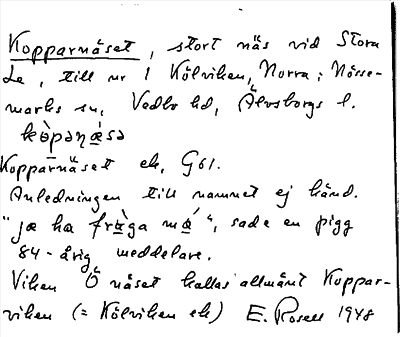 Kopparnäset, stort näs vid Stora
Le, till nr 1 Kölviken, Norra; Nösse-
marks sn, Vedbo hd, Älvsborgs l.
kòpaṇǽsə
Kopparnäset ek, G61.
Anledningen till namnet ej känd.
"jæ hæ frǽga mǽ", sade en pigg
84-årig meddelare.
Viken Ö näset kallas allmänt Koppar-
viken (= Kölviken ek) E. Rosell 1948